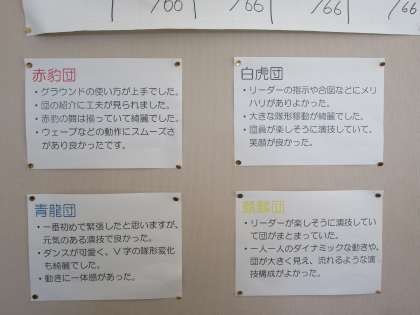 /66
/66
/66
/66
赤豹団
・グラウンドの使い方が上手でした。
・団の紹介に工夫が見られました。
・赤豹の闘は揃っていて綺麗でした。
・ウェーブなどの動作にスムーズさ
があり良かったです。
白虎団
・リーダーの指示や合図などにメリ
ハリがありよかった。
・大きな隊形移動が綺麗でした。
・団員が楽しそうに演技していて、
笑顔が良かった。
青龍団
・一番初めで緊張したと思いますが、
元気のある演技で良かった。
・ダンスが可愛く、V字の隊形変化
も綺麗でした。
・動きに一体感があった。
麒麟団
・リーダーが楽しそうに演技してい
て団がまとまっていた。
・一人一人のダイナミックな動きや、
団が大きく見え、流れるような演
技構成がよかった。